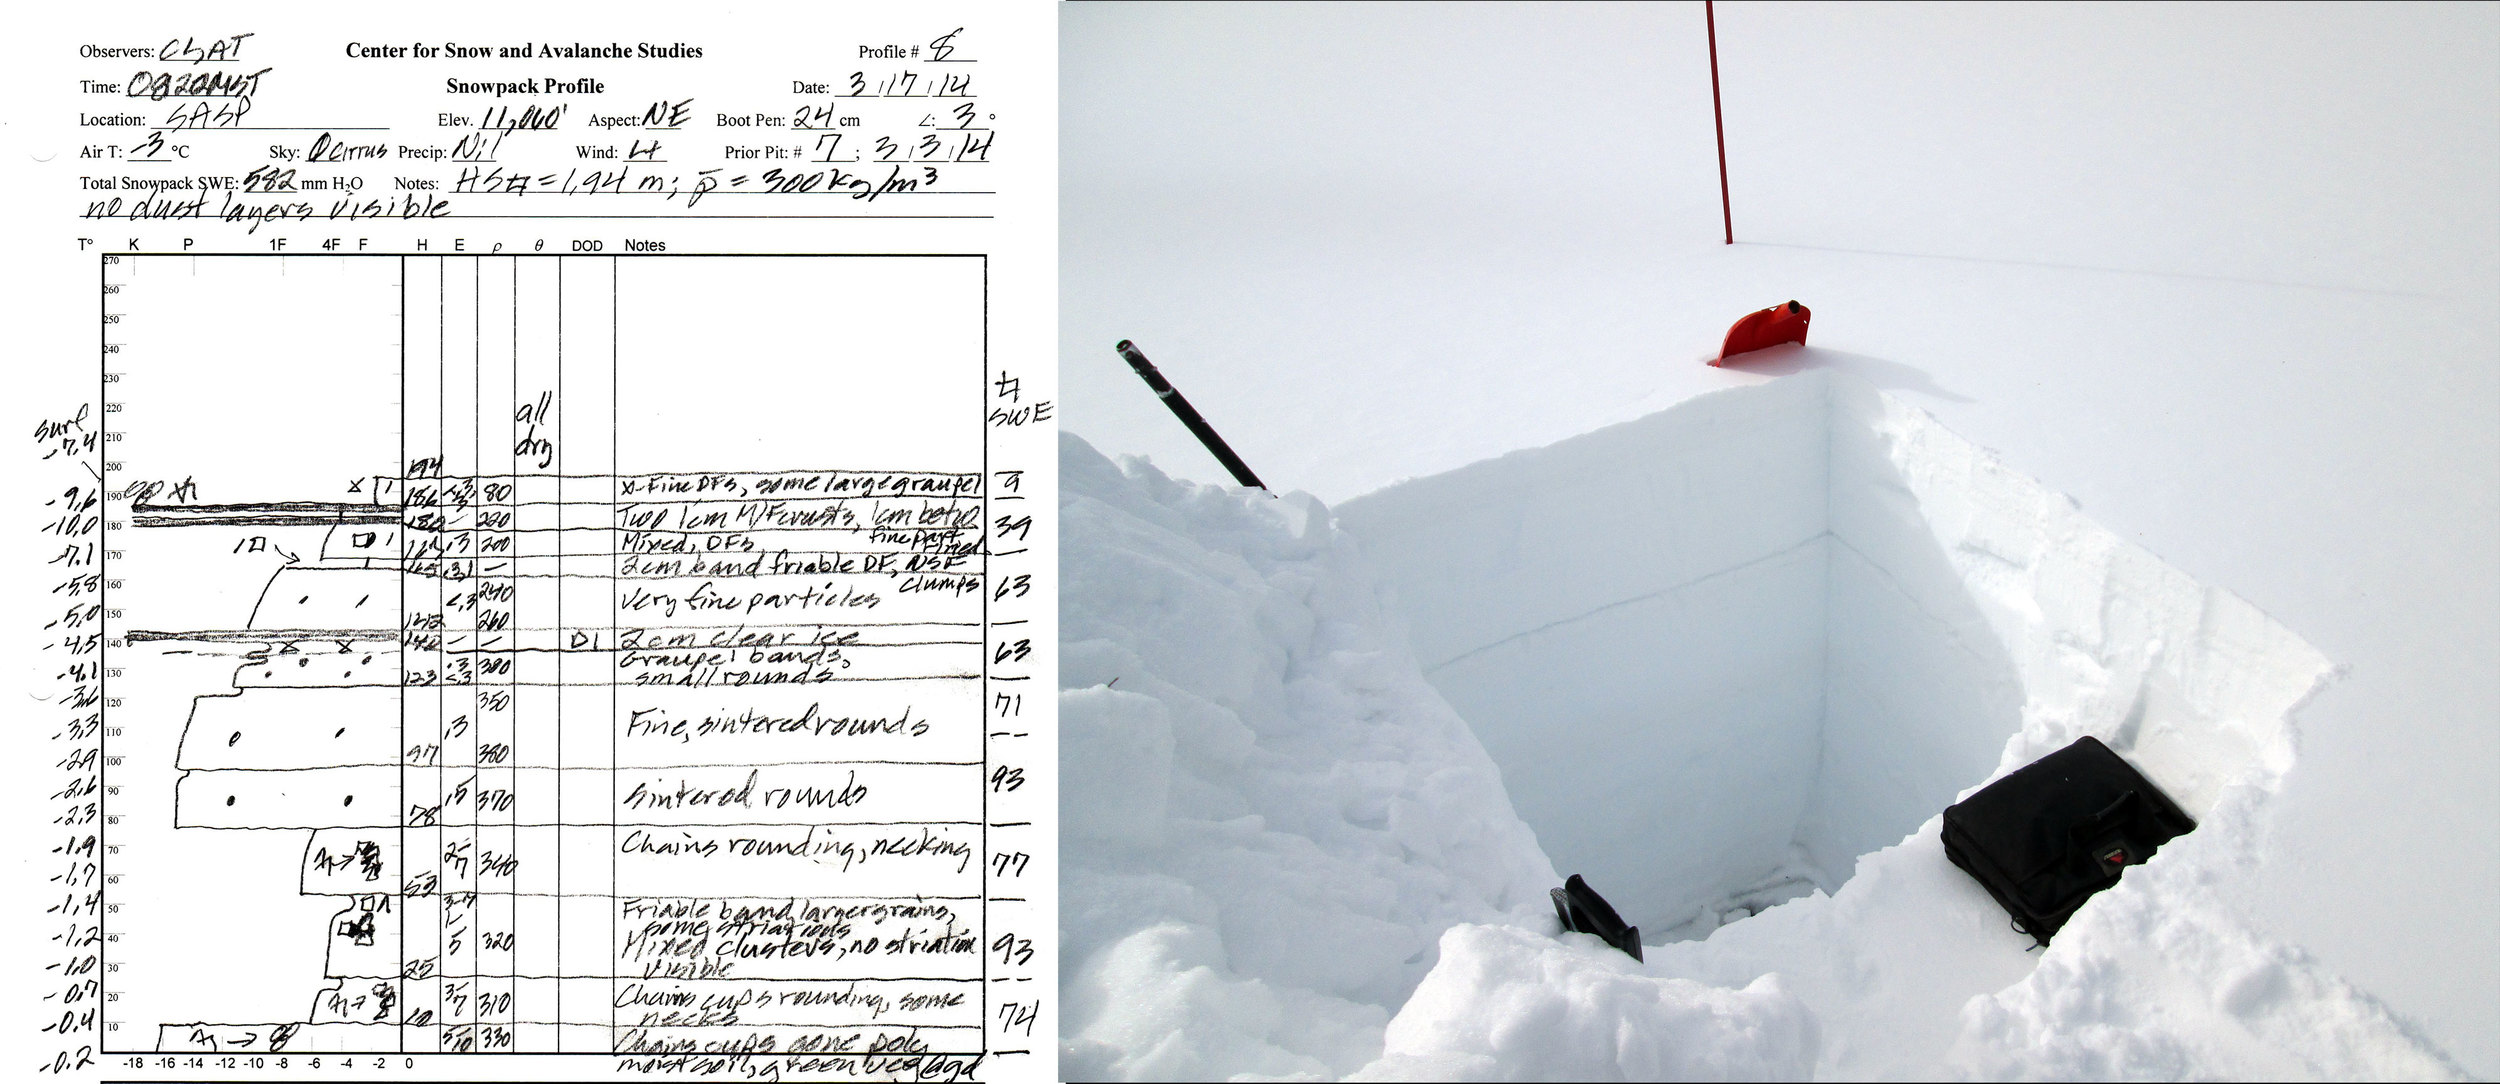 Observers: CSAT Center for Snow and Avalanche Studies Profile # 8
Time: 0822MST Snowpack Profile Date: 3/17/14
Location: SASP Elev. 11,060' Aspect: NE Boot Pen: 24 cm ∠: 3 °
Air T: -3 °C Sky: Cirrus Precip: Nil Wind: Prior Pit: # 7 ; 3/3/14
Total Snowpack SWE: 582 mm H2O Notes: HS = 1.94 m; ρ̄ = 300 kg/m3
no dust layers visible
T° K P 1F 4F F H E ρ θ DOD Notes
270
260
250
240
230
220
210
200
SWE
surf
-7.4
all
dry
194
-9.6 190 186 80 x-Fine DFs, some large graupel 9
-10.0 180 180 - 220 Two 1cm M/F crusts, 1cm betw 39
fine part
-7.1 170 .3 200 Mixed, DFs,
165 - 2cm band friable DF, NSF
clumps
-5.8 160 <.3 240 Very fine particles 63
-5.0 150 142 260
-4.5 140 140 - - D1 2cm clear ice
Graupel bands, 63
-4.1 130 123 .3 <.3 380 small rounds
-3.6 120 350 71
-3.3 110 .3 Fine, sintered rounds
-2.9 100 97 380
-2.6 90 .5 370 sintered rounds 93
-2.3 80 78
-1.9 70 2-7 340 Chains rounding, necking 77
-1.7 60 53
-1.4 50 3-7 Friable band, larger grains,
some striations
-1.2 40 1-5 320 Mixed clusters, no striation 93
-1.0 30 25 visible
-0.7 20 3-7 310 Chains cups rounding, some
-0.4 10 10 necks 74
5-10 330 Chains cups gone poly
-0.2 moist soil, green veg @ gd
-18 -16 -14 -12 -10 -8 -6 -4 -2 0